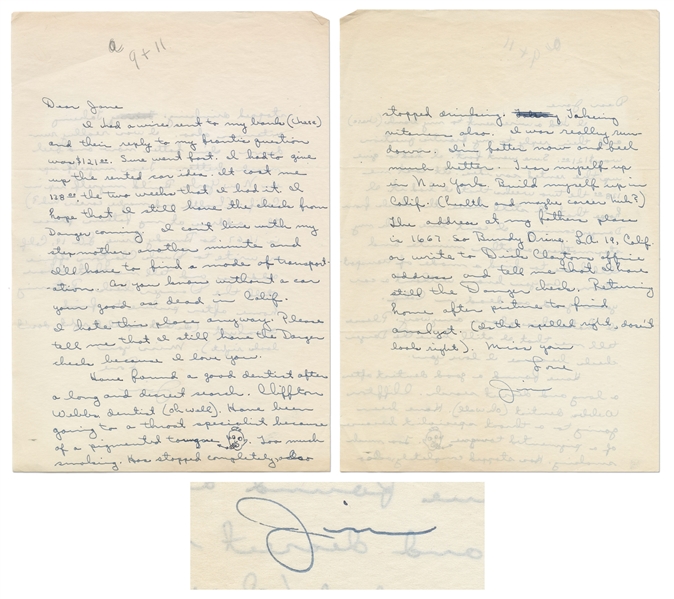 a 9 + 11
Dear Jane
I had a wire sent to my bank (Chase)
and their reply to my frantic question
was $121.00. Sure went fast. I had to give
up the rented car idea. It cost me
128.00, the two weeks that I had it. I
hope that I still have the check from
Danger coming I can't live with my
stepmother another minute and
I'll have to find a mode of transport-
ation. As you know without a car
your good as dead in Calif.
I hate this place anyway. Please
tell me that I still have the Danger
check because I love you.
Have found a good dentist after
a long and descret search. Cliffton
Webbs dentist (oh well). Have been
going to a throat specialist because
of a pigmented tongue. Too much
smoking. Has stopped completely, also
stopped drinking. Takeing
vitamens also. I was really run
down. I'm fatter now and feel
much better. I tear myself up
in New York. Build myself up in
Calif. (health and maybe career huh?)
The address at my fathers place
is 1667 So Bundy Drive. L.A. 19, Calif.
or write to Dick Clayton office
address and tell me that I have
still the Danger check. Returning
home after picture to find
analyst. (Is that spelled right, don't
look right). Miss you
Love
Jim
Jim